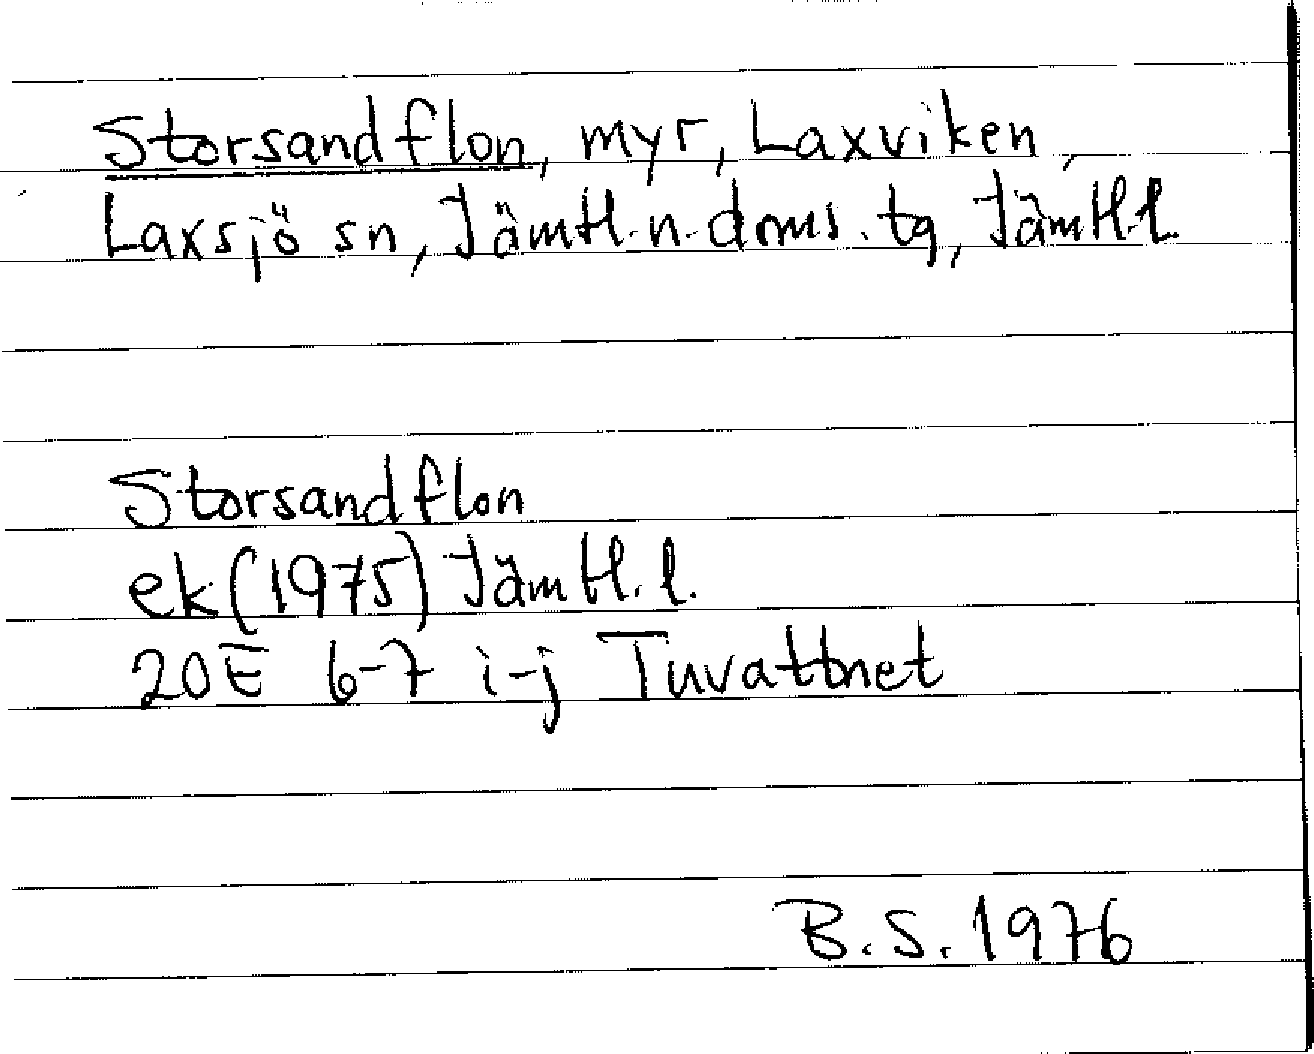 Storsandflon, myr, Laxviken,
Laxsjö sn, Jämtl. n. doms. tg, Jämtl. l.
Storsandflon
ek (1975) Jämtl. l.
20E 6-7 i-j Tuvattnet
B. S. 1976